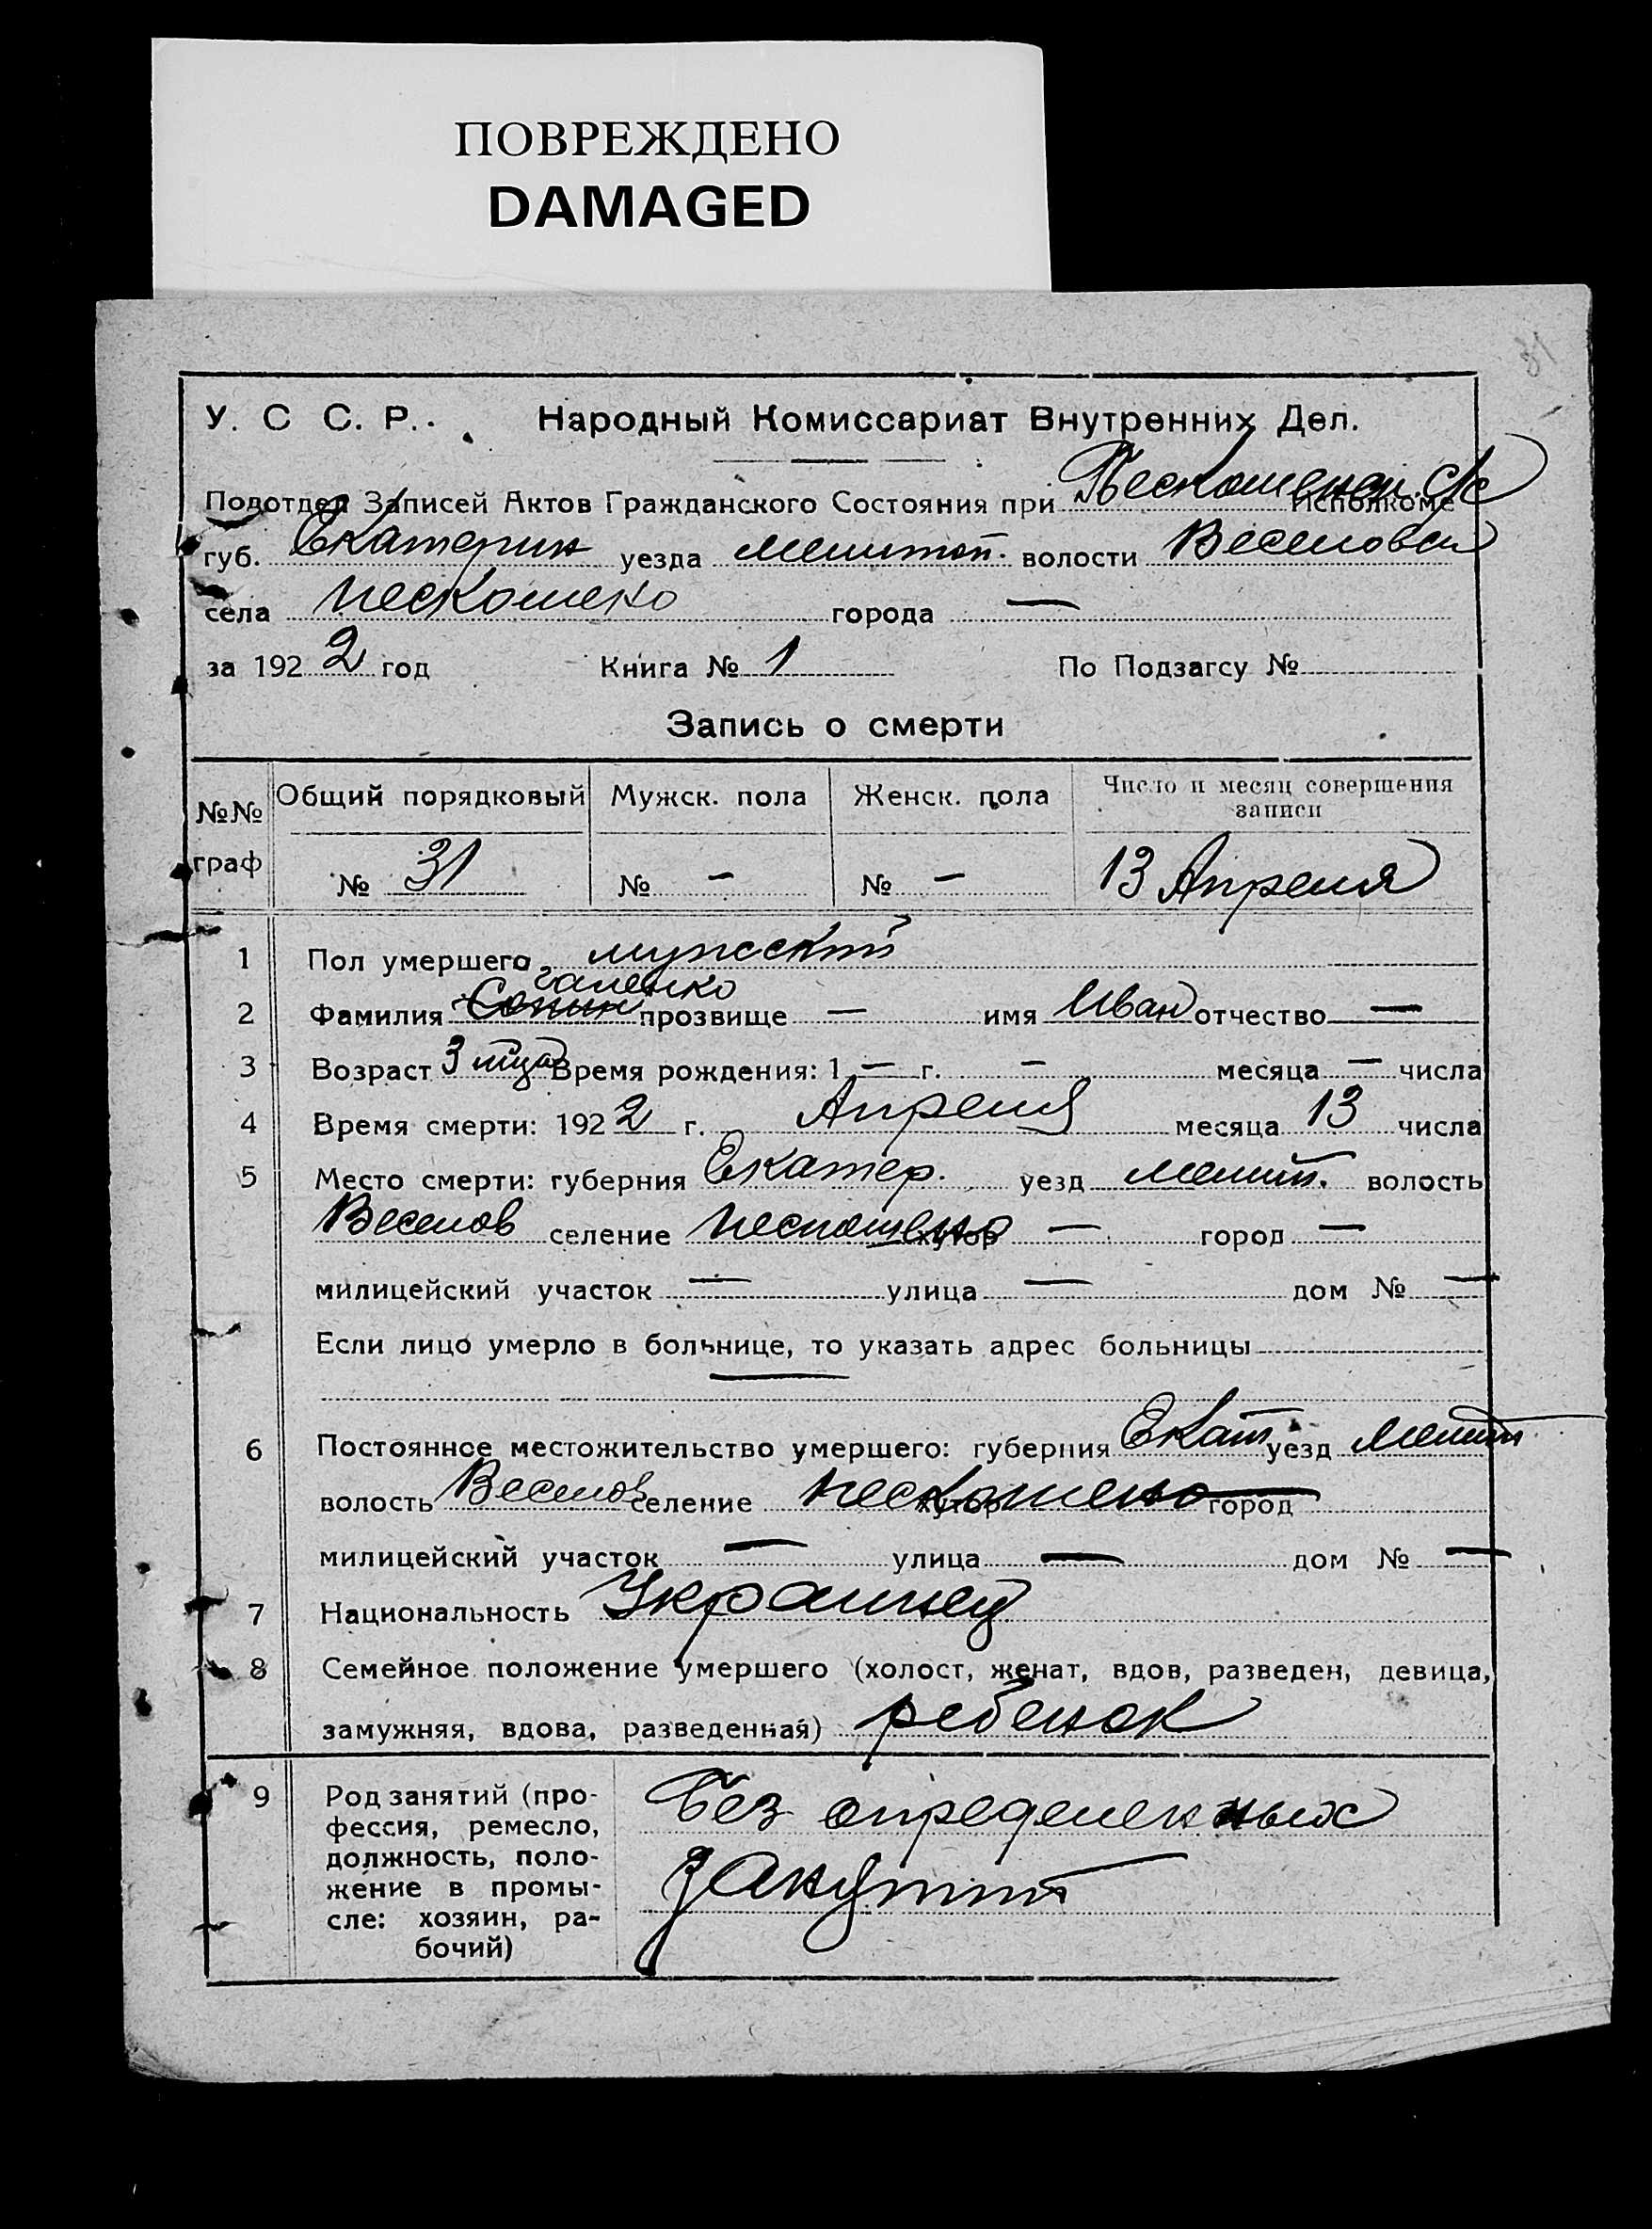 ПОВРЕЖДЕНО
DAMAGED
У. С С. Р. Народный Комиссариат Внутренних Дел.
Подотдел Записей Актов Гражданского Состояния при Пескошенск. С/с Исполкоме
губ. Екатерин уезда мелитоп. волости Веселовск
села пескошено города —
за 1922 год Книга № 1 По Подзагсу №
Запись о смерти
№№ граф Общий порядковый Мужск. пола Женск. пола Число и месяц совершения записи
№ 31 № - № - 13 Апреля
1 Пол умершего мужской
2 Фамилия галенко прозвище — имя Иван отчество —
3 Возраст 3 м-ца Время рождения: 1 — г. — месяца — числа
4 Время смерти: 1922 г. Апреля месяца 13 числа
5 Место смерти: губерния Екатер. уезд мелит. волость
Веселов селение пескошено хутор — город —
милицейский участок — улица — дом № —
Если лицо умерло в больнице, то указать адрес больницы
—
6 Постоянное местожительство умершего: губерния Екат уезд Мелит
волость Веселов селение пескошено хутор город
милицейский участок — улица — дом № —
7 Национальность Украинец
8 Семейное положение умершего (холост, женат, вдов, разведен, девица,
замужняя, вдова, разведенная) ребенок
9 Род занятий (про-
фессия, ремесло,
должность, поло-
жение в промы-
сле: хозяин, ра-
бочий)
Без определенных
занятий